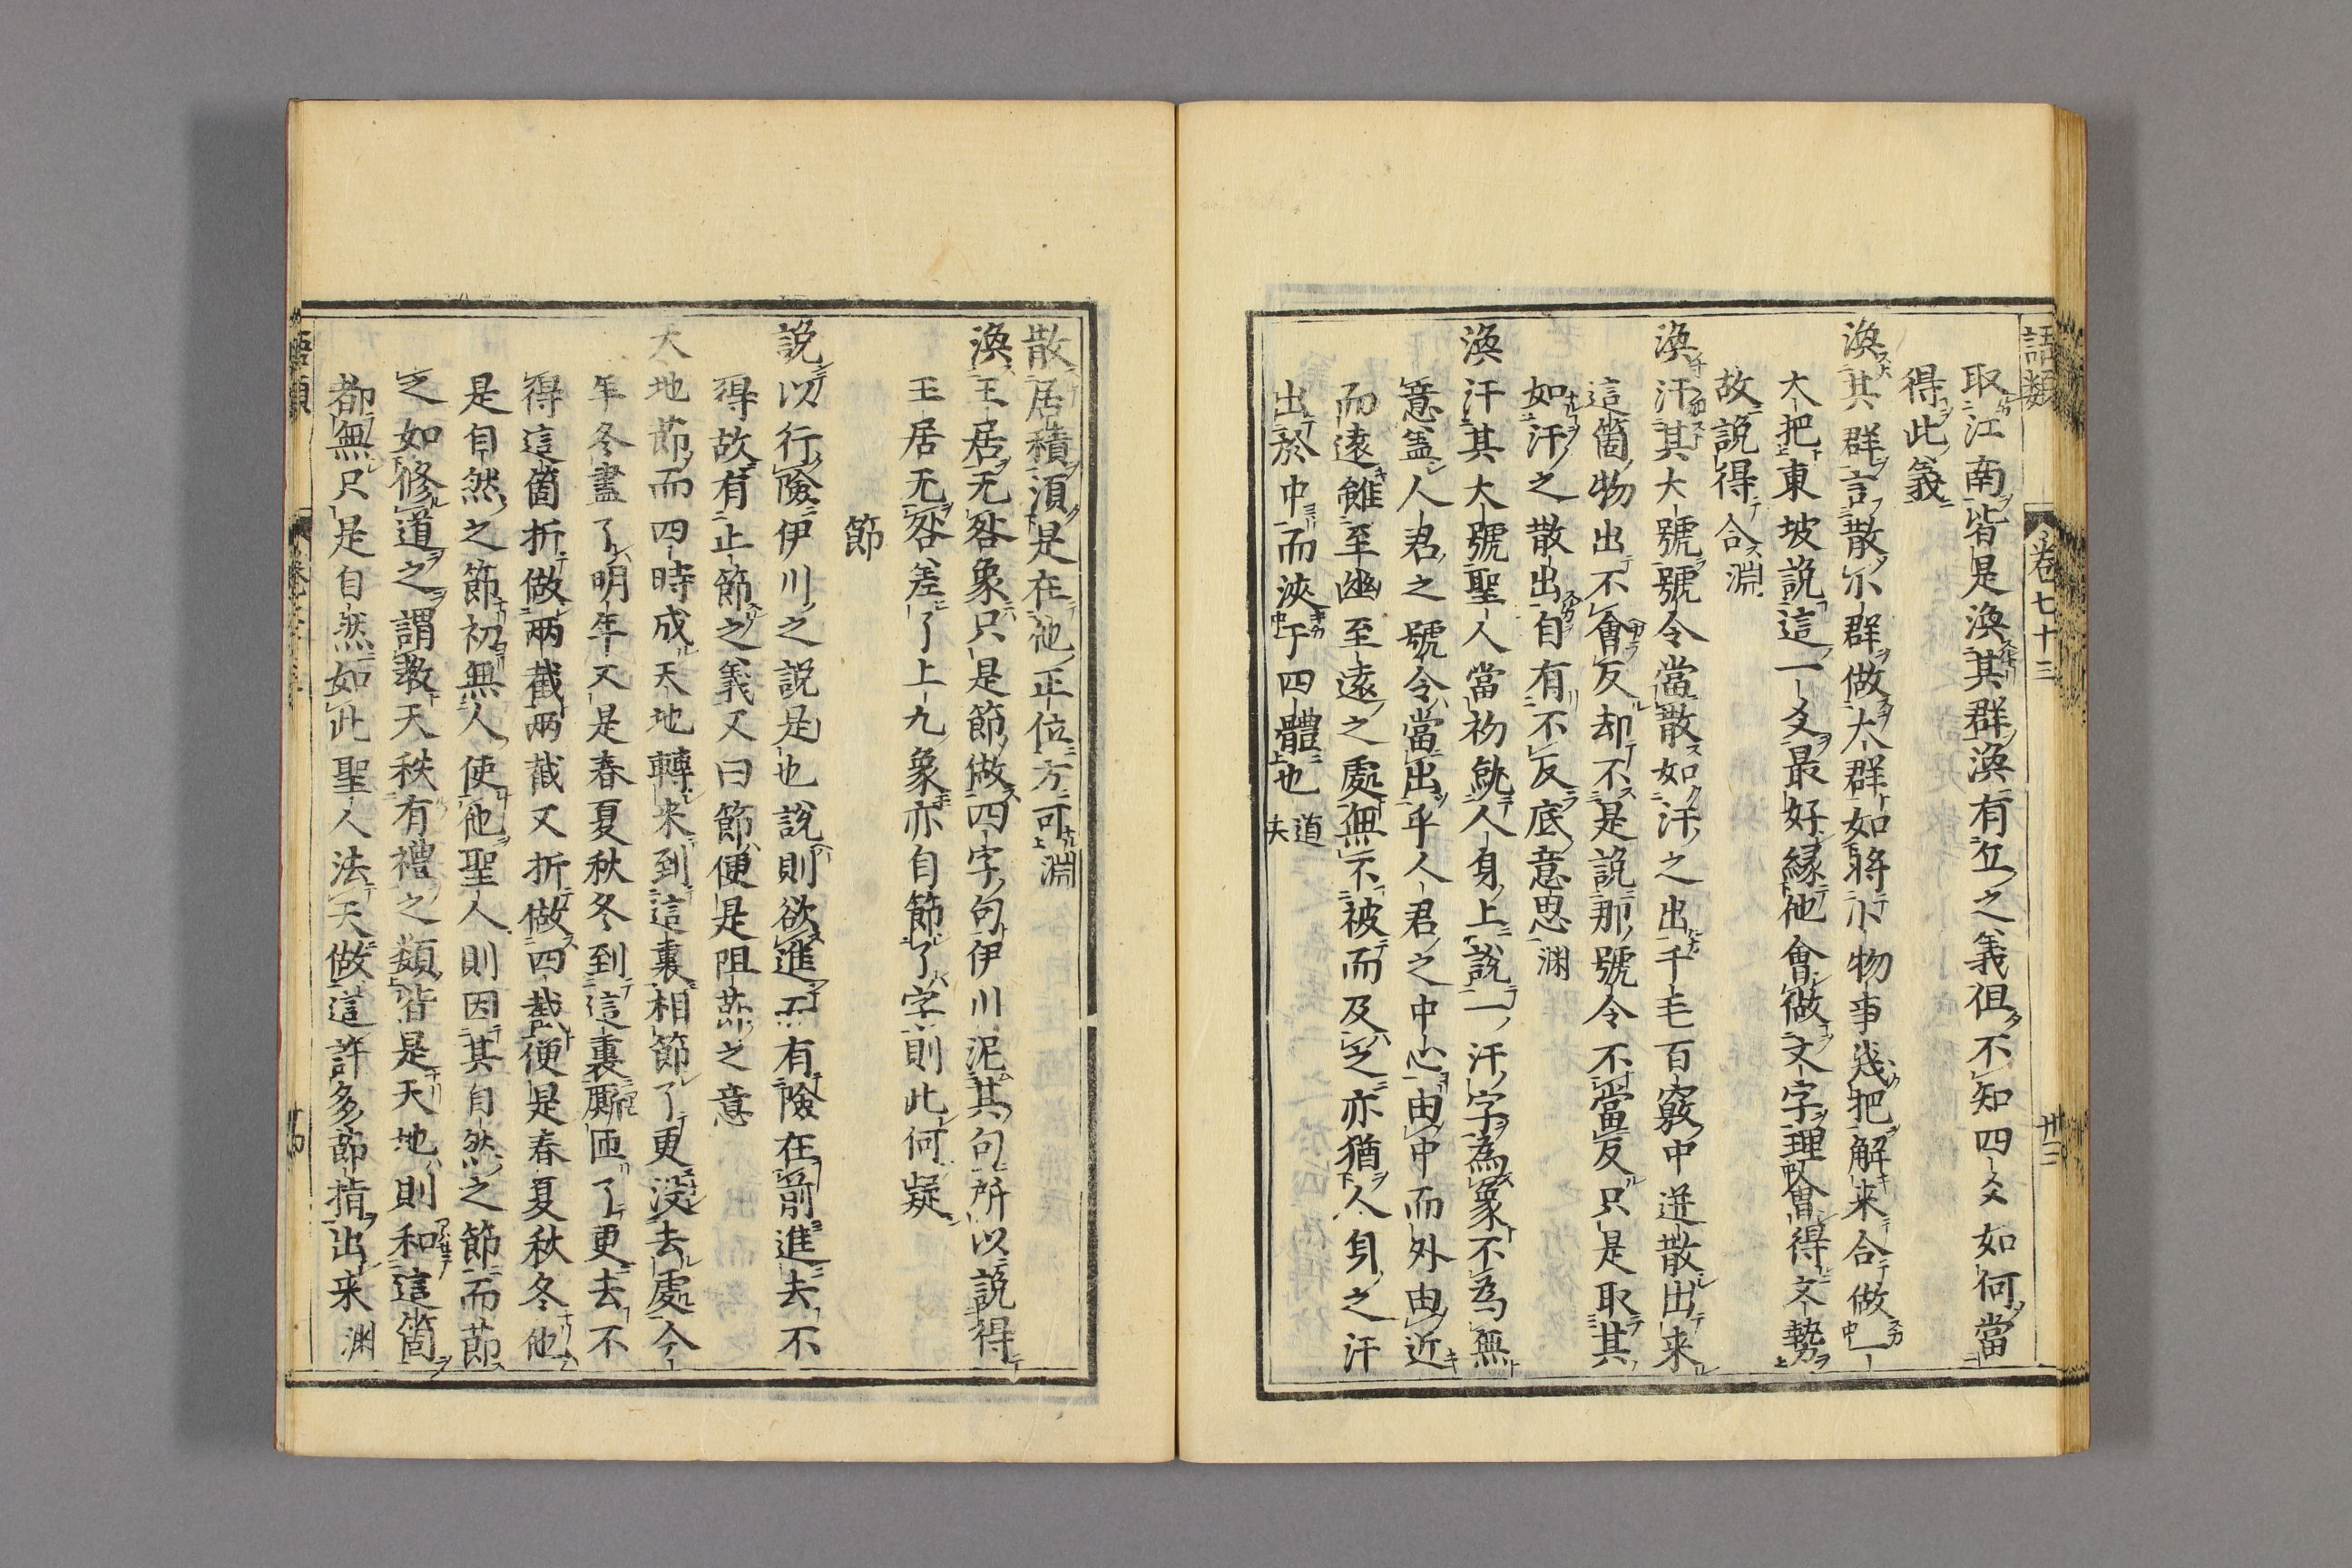 語類
卷七十三
卅二
取江南皆是渙其群渙有丘之義但不知四爻如何當
得此義
渙其群言散小群做大群如將小物事幾把解来合做一
大把東坡說這一爻最好縁他會做文字理會得文勢
故說得合淵
渙汗其大號號令當散如汗之出千毛百竅中迸散出来
這箇物出不會反却不是說那號令不當反只是取其
如汗之散出自有不反底意思渊
渙汗其大號聖人當初就人身上說一汗字為象不為無
意盖人君之號令當出乎人君之中心由中而外由近
而遠雖至幽至遠之處無不被而及之亦猶人身之汗
出於中而浹于四體也道夫
散居積須是在他正位方可淵
渙王居无咎象只是節做四字句伊川泥其句所以說得
王居无咎差了上九象亦自節了字則此何疑
節
說以行險伊川之說是也說則欲進而有險在前進去不
得故有止節之義又曰節便是阻節之意
天地節而四時成天地轉来到這裏相節了更没去處今
年冬盡了明年又是春夏秋冬到這裏厮匝了更去不
得這箇折做兩截兩截又折做四截便是春夏秋冬他
是自然之節初無人使他聖人則因其自然之節而節
之如修道之謂教天秩有禮之類皆是天地則和這箇
都無只是自然如此聖人法天做這許多節揹出来渊
語類